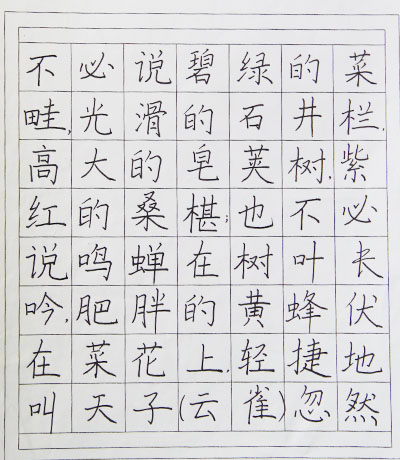 不必说碧绿的菜
畦,光滑的石井栏,
高大的皂荚树,紫
红的桑椹;也不必
说鸣蝉在树叶长
吟,肥胖的黄蜂伏
在菜花上,轻捷地
叫天子(云雀)忽然